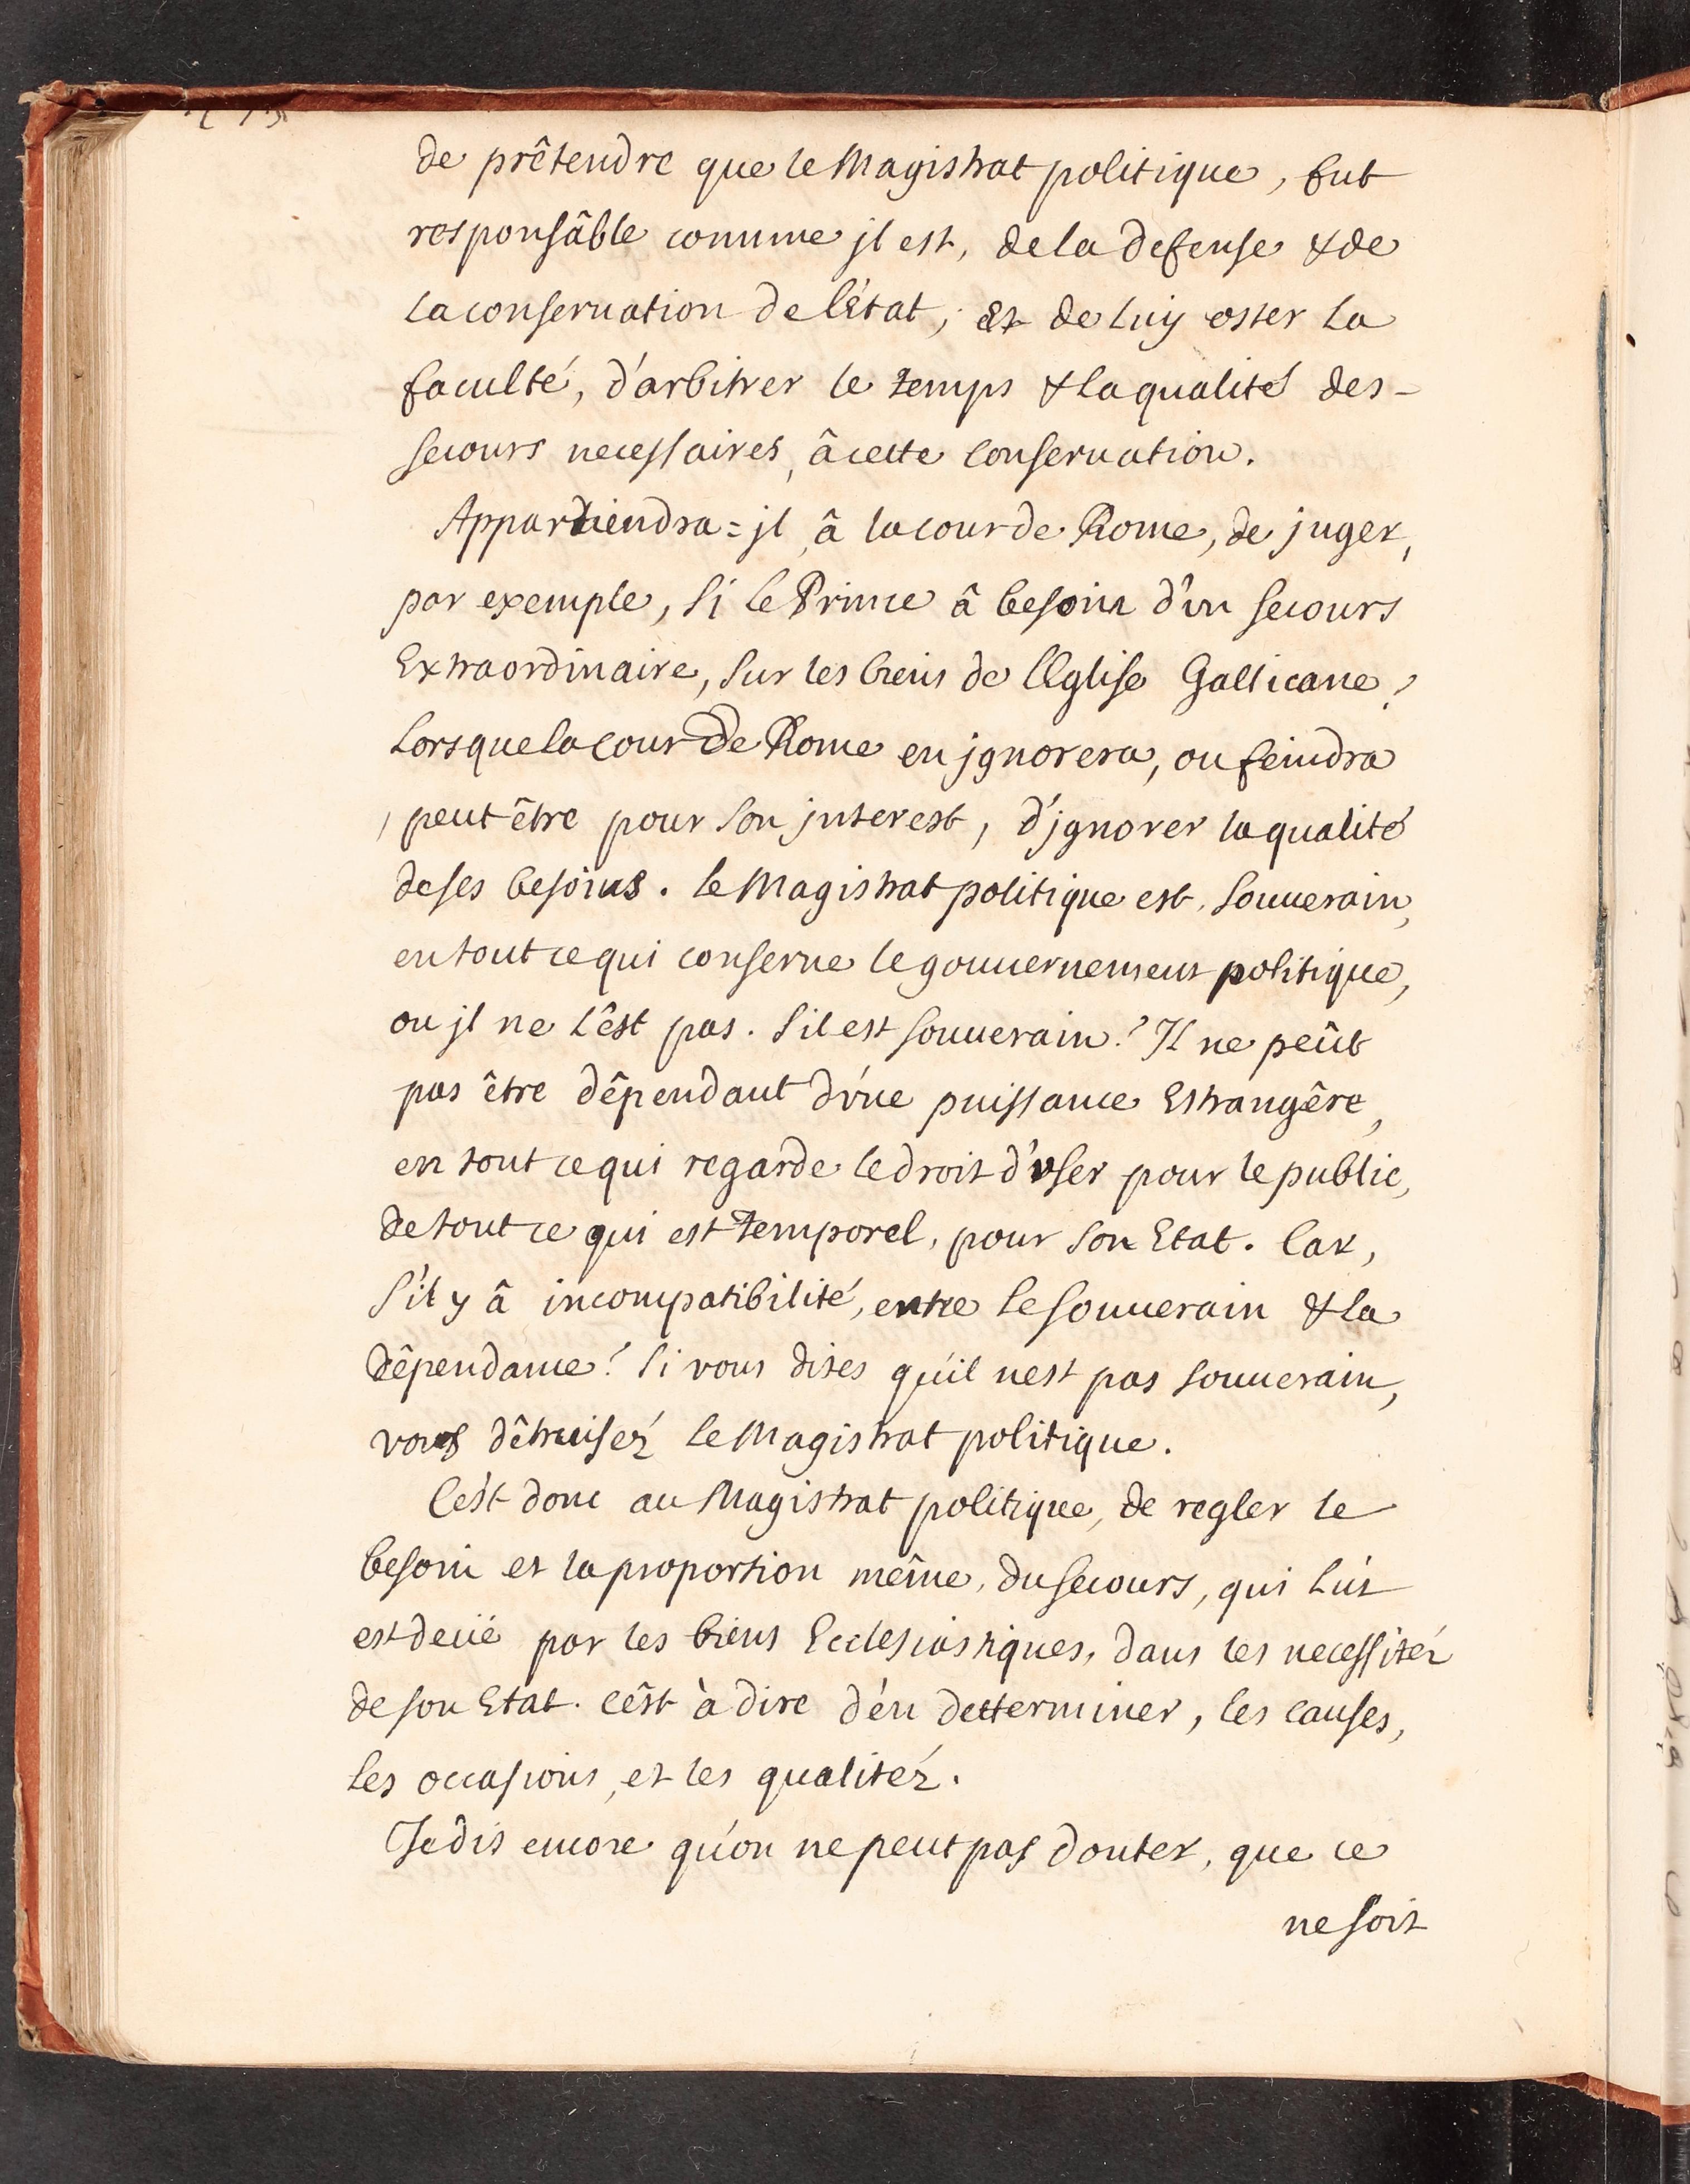 de prêtendre que le Magistrat politique, fut
responsâble comme jl est, de la defense & de
la conseruation de l'État, et de luy oster la
faculté, d'arbitrer le temps & la qualité des-
secours necessaires, â cette conseruation.
Appartiendra=jl, â la cour de Rome, de juger,
par exemple, si le Prince â besoin d'vn secours
Extraordinaire, sur les biens de l'Eglise Gallicane?
Lorsque la cour de Rome en jgnorera, ou feindra
, peut être pour son jnterest, d'jgnorer la qualité
de ses besoins. le Magistrat politique est, souuerain,
en tout ce qui conserne le gouuernement politique,
ou jl ne l'êst pas. s'il est souuerain? Il ne peût
pas être dêpendant d'vne puissance Estrangêre,
en tout ce qui regarde le droit d'vser pour le public,
de tout ce qui est temporel, pour son Etat. Car,
s'il y â incompatibilité, entre le souuerain & la
dêpendance? si vous dites qu'il nest pas souuerain,
vous dêtruisez le Magistrat politique.
C'est donc au Magistrat politique, de regler le
besoin et la proportion même, du secours, qui luy
est deüe par les biens Ecclesiastiques, dans les necessitéz
de son Etat. c'êst à dire d'en detterminer, les causes,
les occasions, et les qualitéz.
Je dis encore qu'on ne peut pas douter, que ce
ne soit